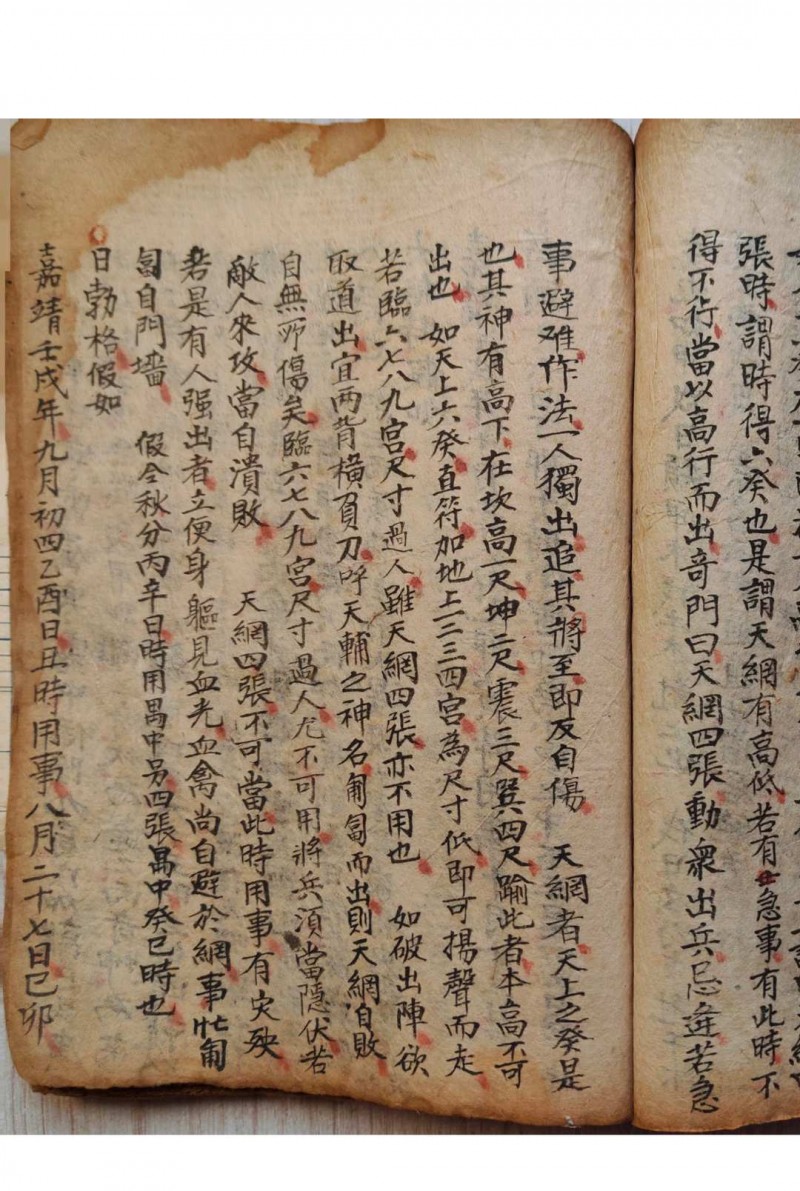 張時謂時得六癸也是謂天網有高低若有急事有此時不
得不行當以高行而出奇門曰天網四張動衆出兵忌逢若急
事避难作法一人獨出追其將至即反自傷 天網者天上之癸是
也其神有高下在坎高一尺坤二尺震三尺巽四尺踰此者本高不可
出也 如天上六癸直符加地上一二三四宮為尺寸低即可揚聲而走
若臨六七八九宮尺寸過人雖天網四張亦不用也 如破出陣欲
取道出宜两背橫負刀呼天輔之神名匍匐而出則天網自敗
自無所傷矣臨六七八九宮尺寸過人尤不可用將兵須當隱伏若
敵人來攻當自潰敗 天網四張不可當此時用事有灾殃
若是有人强出者立便身軀見血光血禽尚自避於網事忙匍
匐自門墻 假令秋分丙辛日時用局中另四張局中癸巳時也
日勃格假如
嘉靖壬戌年九月初四乙酉日丑時用事八月二十七日己卯